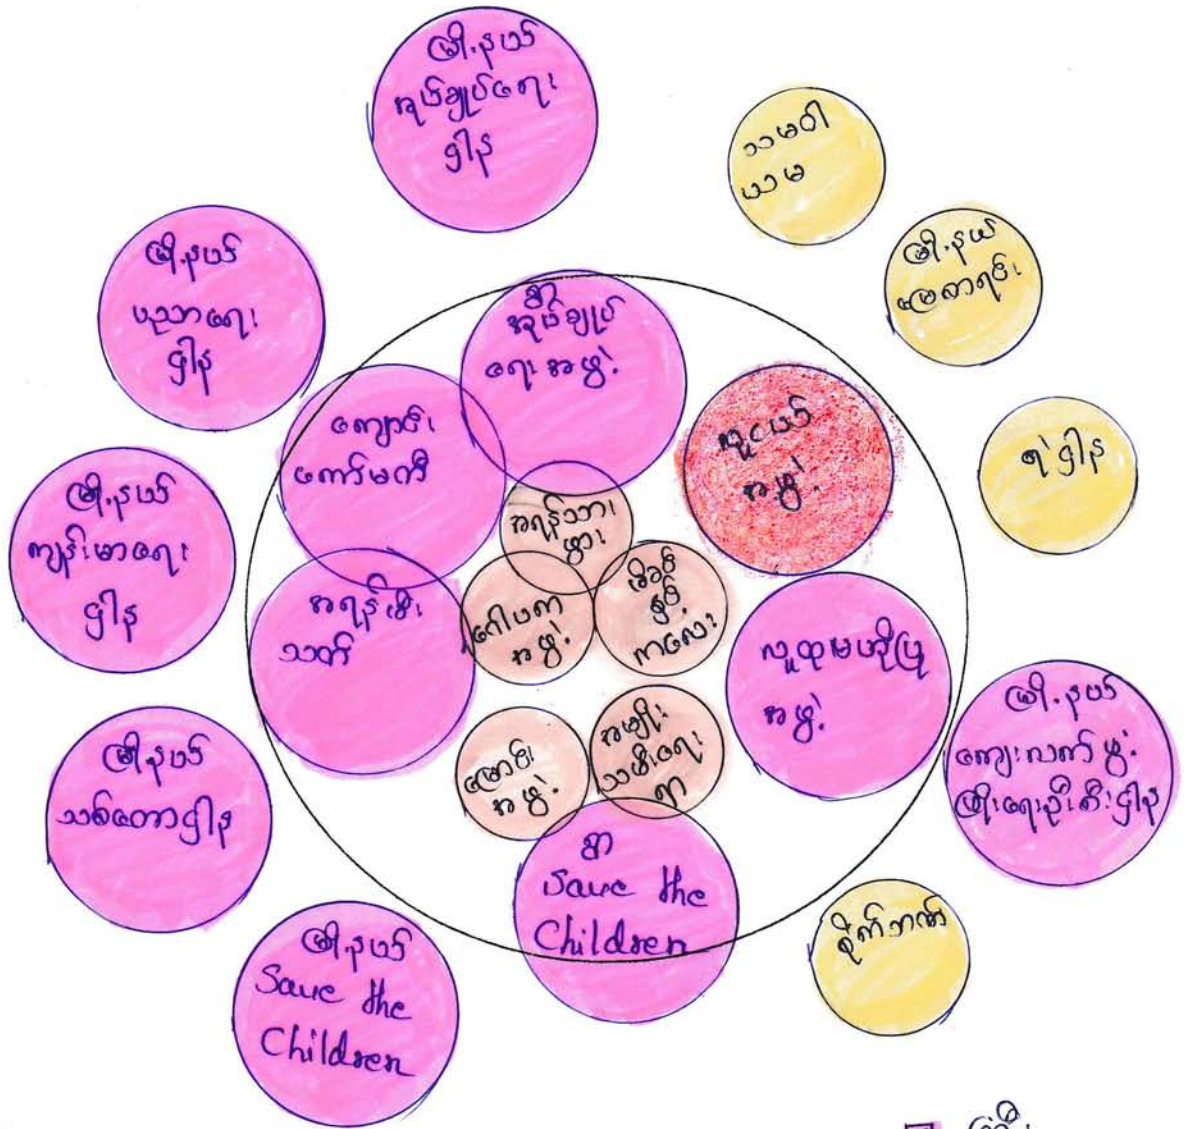 မြို့နယ်
အုပ်ချုပ်ရေး
ဌါန
သမဝါ
ယမ
မြို့နယ်
ပညာရေး
ဌါန
မြို့နယ်
မြေစာရင်း
ရွာ
အုပ်ချုပ်
ရေးအဖွဲ့
ကျောင်း
ကော်မတီ
လူငယ်
အဖွဲ့
ရဲဌါန
မြို့နယ်
ကျန်းမာရေး
ဌါန
အရန်သား
ဖွား
အရန်မီး
သတ်
ဂေါပက
အဖွဲ့
မိခင်
နှင့်
ကလေး
လူထုမဟိုပြု
အဖွဲ့
မြို့နယ်
ကျေးလက်ဖွံ့
ဖြိုးရေးဦးစီးဌါန
မြို့နယ်
သစ်တောဌါန
မြောင်း
အဖွဲ့
အမျိုး
သမီးရေး
ရာ
ရွာ
Save the
Children
စိုက်ဘဏ်
မြို့နယ်
Save the
Children